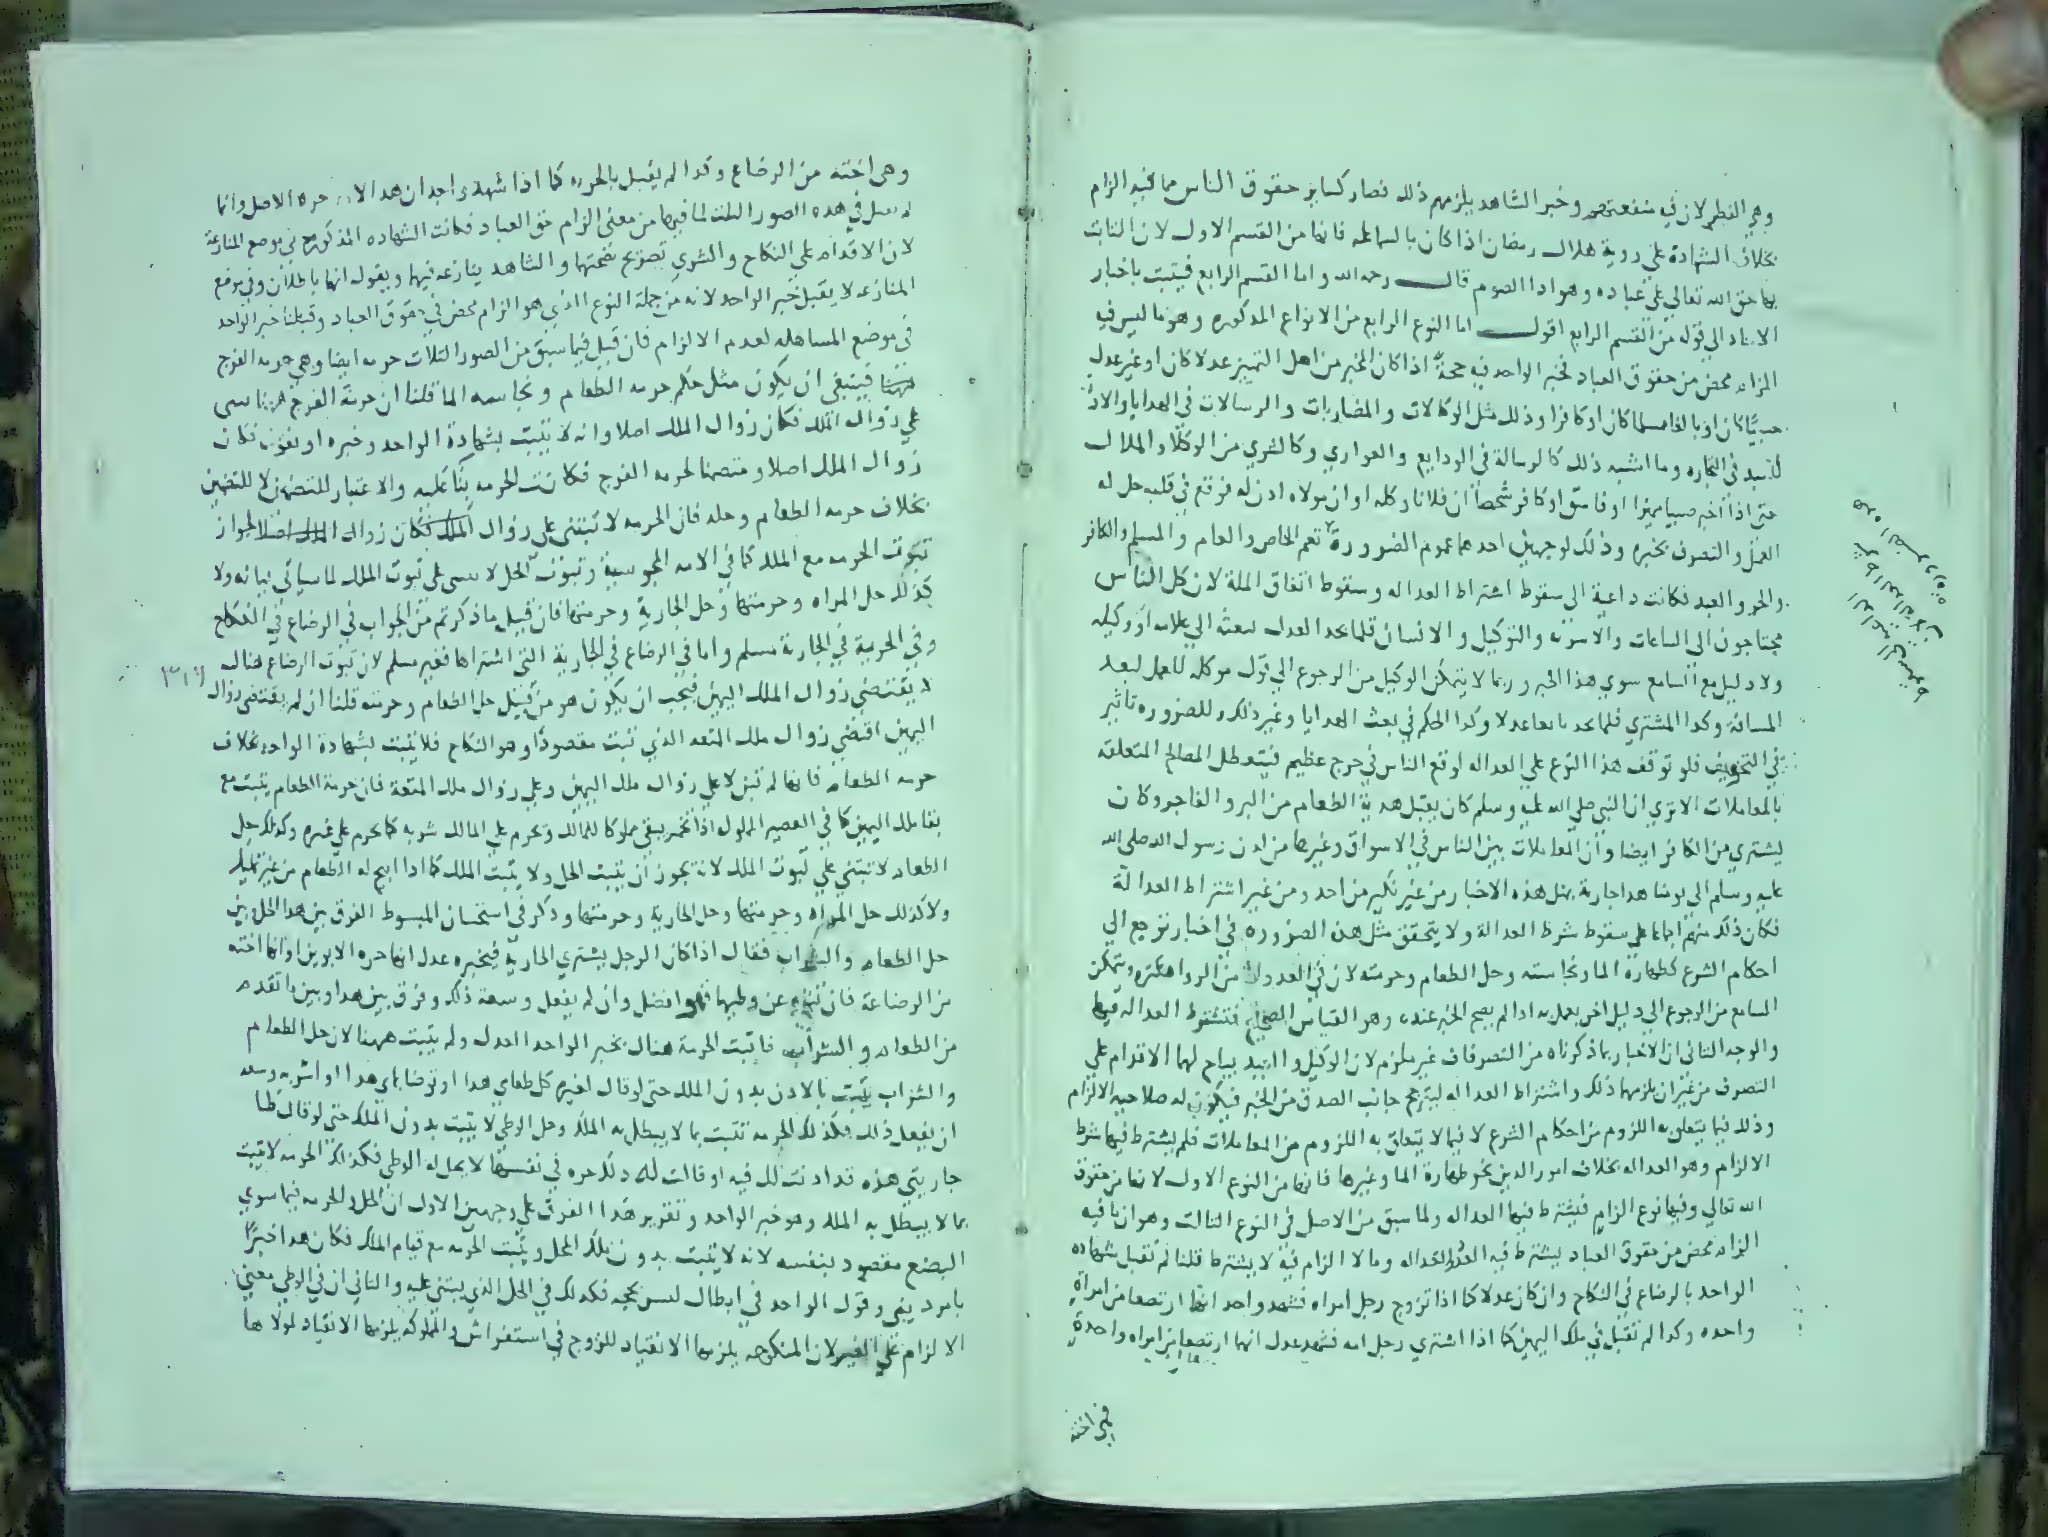 وهي الفطر لان فيه منفعتهم وخبر الشاهد يلزمهم ذلك فصار كساير حقوق الناس مما فيه الزام
بخلاف الشهادة على روية هلال رمضان اذا كان بالسما عله فانها من القسم الاول لان الثابت
بها حق الله تعالى على عباده وهو ادا الصوم قال رحمه الله واما القسم الرابع فيثبت باخبار
الاحاد الى قوله من القسم الرابع اقول اما النوع الرابع من الانواع المذكوره وهو ما ليس فيه
الزام محض من حقوق العباد فخبر الواحد فيه حجة اذا كان المخبر من اهل التمييز عدلا كان او غير عدل
صبيا كان او بالغا مسلما كان او كافرا وذلك مثل الوكالات والمضاربات والرسالات في الهدايا والاذن
للعبد في التجاره وما اشبه ذلك كالرسالة في الودايع والعواري وكالشري من الوكلا والملاك
حتى اذا اخبر صبيا مميزا او فاسق او كافر شخصا ان فلانا وكله او ان مولاه اذن له فوقع في قلبه حل له
العمل والتصرف بخبره وذلك لوجهين احدهما عموم الضرورة تعم الخاص والعام والمسلم والكافر
والحر والعبد فكانت داعية الى سقوط اشتراط العداله وسقوط اتفاق الملة لان كل الناس
محتاجون الى البياعات والاسربه والتوكيل والانسان قلما يجد العدل لبعثه الى غلامه او وكيله
ولا دليل مع السامع سوي هذا الخبر وربما لا يتمكن الوكيل من الرجوع الى قول موكله للعمل لبعد
المسافة وكدا المشتري قلما يجد بايعا عدلا وكدا الحكم في بعث الهدايا وغير ذلك وللضروره تاثير
في التخفيف فلو توقف هذا النوع على العداله لوقع الناس في حرج عظيم فيتعطل المصالح المتعلقه
بالمعاملات الا تري ان النبي صلى الله عليه وسلم كان يقبل هدية الطعام من البر والفاجر وكان
يشتري من الكافر ايضا وان المعاملات بين الناس في الاسواق وغيرها من لدن رسول الله صلى الله
عليه وسلم الى يومنا هدا جارية بمثل هذه الاخبار من غير نكير من احد ومن غير اشتراط العدالة
فكان ذلك منهم اجماعا على سقوط شرط العدالة ولا يتحقق مثل هذه الضروره في اخبار ترجع الى
احكام الشرع كطهارة الما ونجاسته وحل الطعام وحرمته لان في العدول من الرواة كثره ويتمكن
السامع من الرجوع الى دليل اخر يعمل به اذا لم يصح الخبر عنده وهو القياس الصحيح فتشترط العداله فيها
والوجه الثاني ان الاخبار بما ذكرناه من التصرفات غير ملزم لان الوكيل والعبد يباح لهما الاقدام على
التصرف من غير ان يلزمهما ذلك واشتراط العداله ليترجح جانب الصدق من الخبر فيكون له صلاحية الالزام
وذلك فيما يتعلق به اللزوم من احكام الشرع لا فيما لا يتعلق به اللزوم من المعاملات فلم يشترط فيها شرط
الالزام وهو العداله بخلاف امور الدين نحو طهارة الما وغيرها فانها من النوع الاول لانها من حقوق
الله تعالى وفيها نوع الزام فيشترط فيها العداله ولما سبق من الاصل في النوع الثالث وهو ان ما فيه
الزام محض من حقوق العباد يشترط فيه العدد والعداله وما لا الزام فيه لا يشترط قلنا لم تقبل شهاده
الواحد بالرضاع في النكاح وان كان عدلا كما اذا تزوج رجل امراه فشهد واحد انهما ارتضعا من امراة
واحده وكدا لم تقبل في ملك اليمين كما اذا اشتري رجل امه فشهد عدل انهما ارتضعا من امراه واحدة
فهي اخته
العاجز الى سقوط
شرط العدالة لان
هذه الضروره
وهي اخته من الرضاع وكدا لم يقبل بالحريه كما اذا شهد واحد ان هده الامه حرة الاصل وانما
لم يقبل في هذه الصور الثلث لما فيها من معنى الزام حق العباد فكانت الشهاده المذكوره في موضع المنازعة
لان الاقدام على النكاح والشري تصريح بصحتها والشاهد ينازعه فيها ويقول انها باطلان وفي موضع
المنازعه لا يقبل خبر الواحد لانه من جملة النوع الذي هو الزام محض في حقوق العباد وقبلنا خبر الواحد
في موضع المساهله لعدم الالزام فان قيل فيما سبق من الصور الثلاث حرمه ايضا وهي حرمه الفرج
فينبغي ان يكون مثل حكم حرمه الطعام ونجاسه الما قلنا ان حرمة الفرج هنا تبتنى
على زوال الملك فكان زوال الملك اصلا وانه لا تثبت بشهادة الواحد وخبره او نقول فكان
زوال الملك اصلا ومتضمنا لحرمه الفرج فكانت الحرمه بنا عليه والاعتبار للمتضمن لا للمتضمن
بخلاف حرمه الطعام وحله فان الحرمه لا تبتني على زوال الملك فكان زوال الملك اصلا لجواز
ثبوت الحرمه مع الملك كما في الامه المجوسية وثبوت الحل لا يبتنى على ثبوت الملك لما سياتى بيانه ولا
كذلك حل المراه وحرمتها وحل الجارية وحرمتها فان قيل ما ذكرتم من الجواب في الرضاع في النكاح
وفي الحرية في الجارية مسلم واما في الرضاع في الجارية التي اشتراها فغير مسلم لان ثبوت الرضاع هناك
لا يقتضي زوال الملك اليمين فيجب ان يكون هو من قبيل حل الطعام وحرمته قلنا ان لم يقتضي زوال
اليمين اقتضي زوال ملك المتعه الذي ثبت مقصودا وهو النكاح فلا يثبت بشهادة الواحد بخلاف
حرمه الطعام فانها لم تبتن لا على زوال ملك اليمين وعلى زوال ملك المتعة فان حرمة الطعام يثبت مع
بقا ملك اليمين كما في العصير المملوك اذا تخمر يبقى مملوكا للمالك ويحرم على المالك شربه كما يحرم على غيره وكذلك حل
الطعام لا تبتني على ثبوت الملك لانه يجوز ان يثبت الحل ولا يثبت الملك كما اذا ابيح له الطعام من غير تمليك
ولا كذلك حل المراه وحرمتها وحل الجارية وحرمتها وذكر في استحسان المبسوط الفرق بين هدا الحل وبين
حل الطعام والشراب فقال اذا كان الرجل يشتري الجارية فيخبره عدل انها حره الابوين او انها اخته
من الرضاعة فان تنزه عن وطيها فهو افضل وان لم يفعل وسعه ذلك وفرق بين هدا وبين ما تقدم
من الطعام والشراب فاثبت الحرمة هناك بخبر الواحد العدل ولم يثبت ههنا لان حل الطعام
والشراب يثبت بالاذن بدون الملك حتى لو قال لغيره كل طعامي هدا او توضا بمايي هدا او اشربه وسعه
ان يفعل ذلك فكذلك الحرمه تثبت بما لا يبطل به الملك وحل الوطي لا يثبت بدون الملك حتى لو قال طا
جاريتي هذه قد اذنت لك فيه او قالت له ذلك حره في نفسها لا يحل له الوطي فكذلك الحرمه لا تثبت
بما لا يبطل به الملك وهو خبر الواحد وتقرير هذا الفرق على وجهين الاول ان الحل والحرمه فيما سوي
البضع مقصود بنفسه لانه لا يثبت بدون ملك المحل ويثبت الحرمه مع قيام الملك فكان هدا خبرا
بامر ديني وقول الواحد في ابطال الملك ليس بحجه فكدلك في الحل الذي يبتنى عليه والثاني ان في الوطي معني
الالزام على الغير لان المنكوحه يلزمها الانقياد للزوج في استفراش والمملوكه يلزمها الانقياد لمولاها
٣١٦